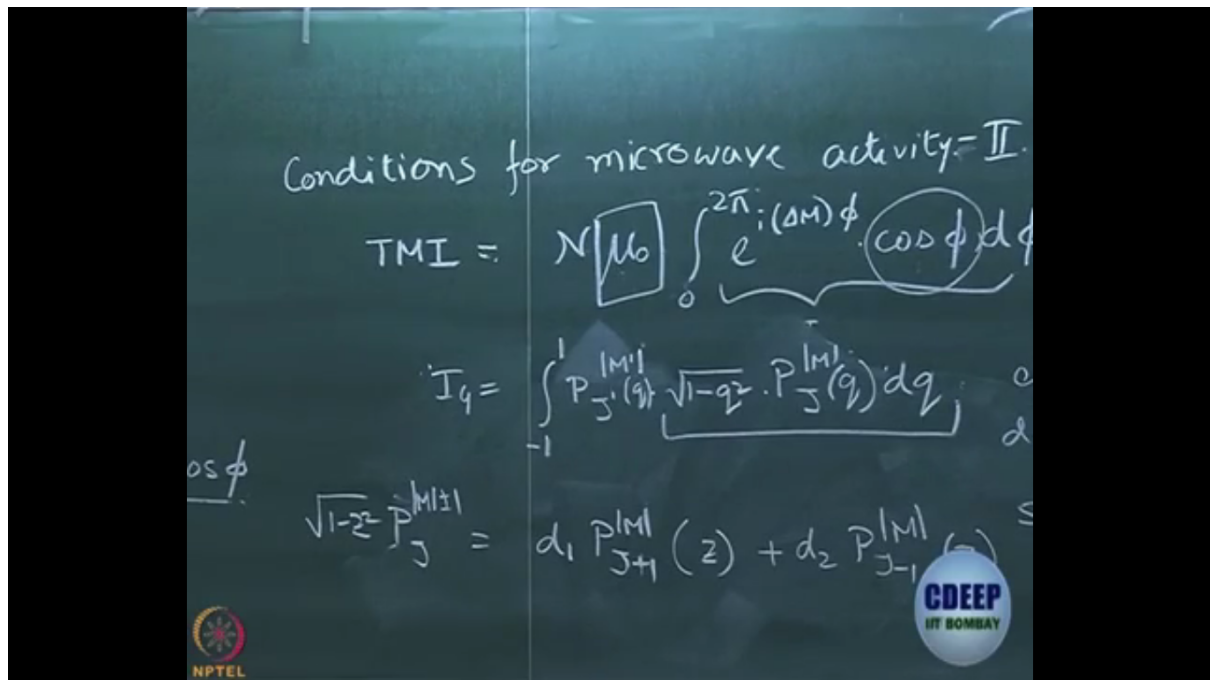 Conditions for microwave activity - II.
TMI = N μ₀ ∫₀^{2π} e^{i(ΔM)φ} . cos φ dφ
I_q = ∫₋₁^{1} P_{J'}^{|M'|}(q) √1-q² . P_J^{|M|}(q) dq
os φ
√1-z² P_J^{|M|±1} = d₁ P_{J+1}^{|M|} (z) + d₂ P_{J-1}^{|M|}
CDEEP
IIT BOMBAY
NPTEL